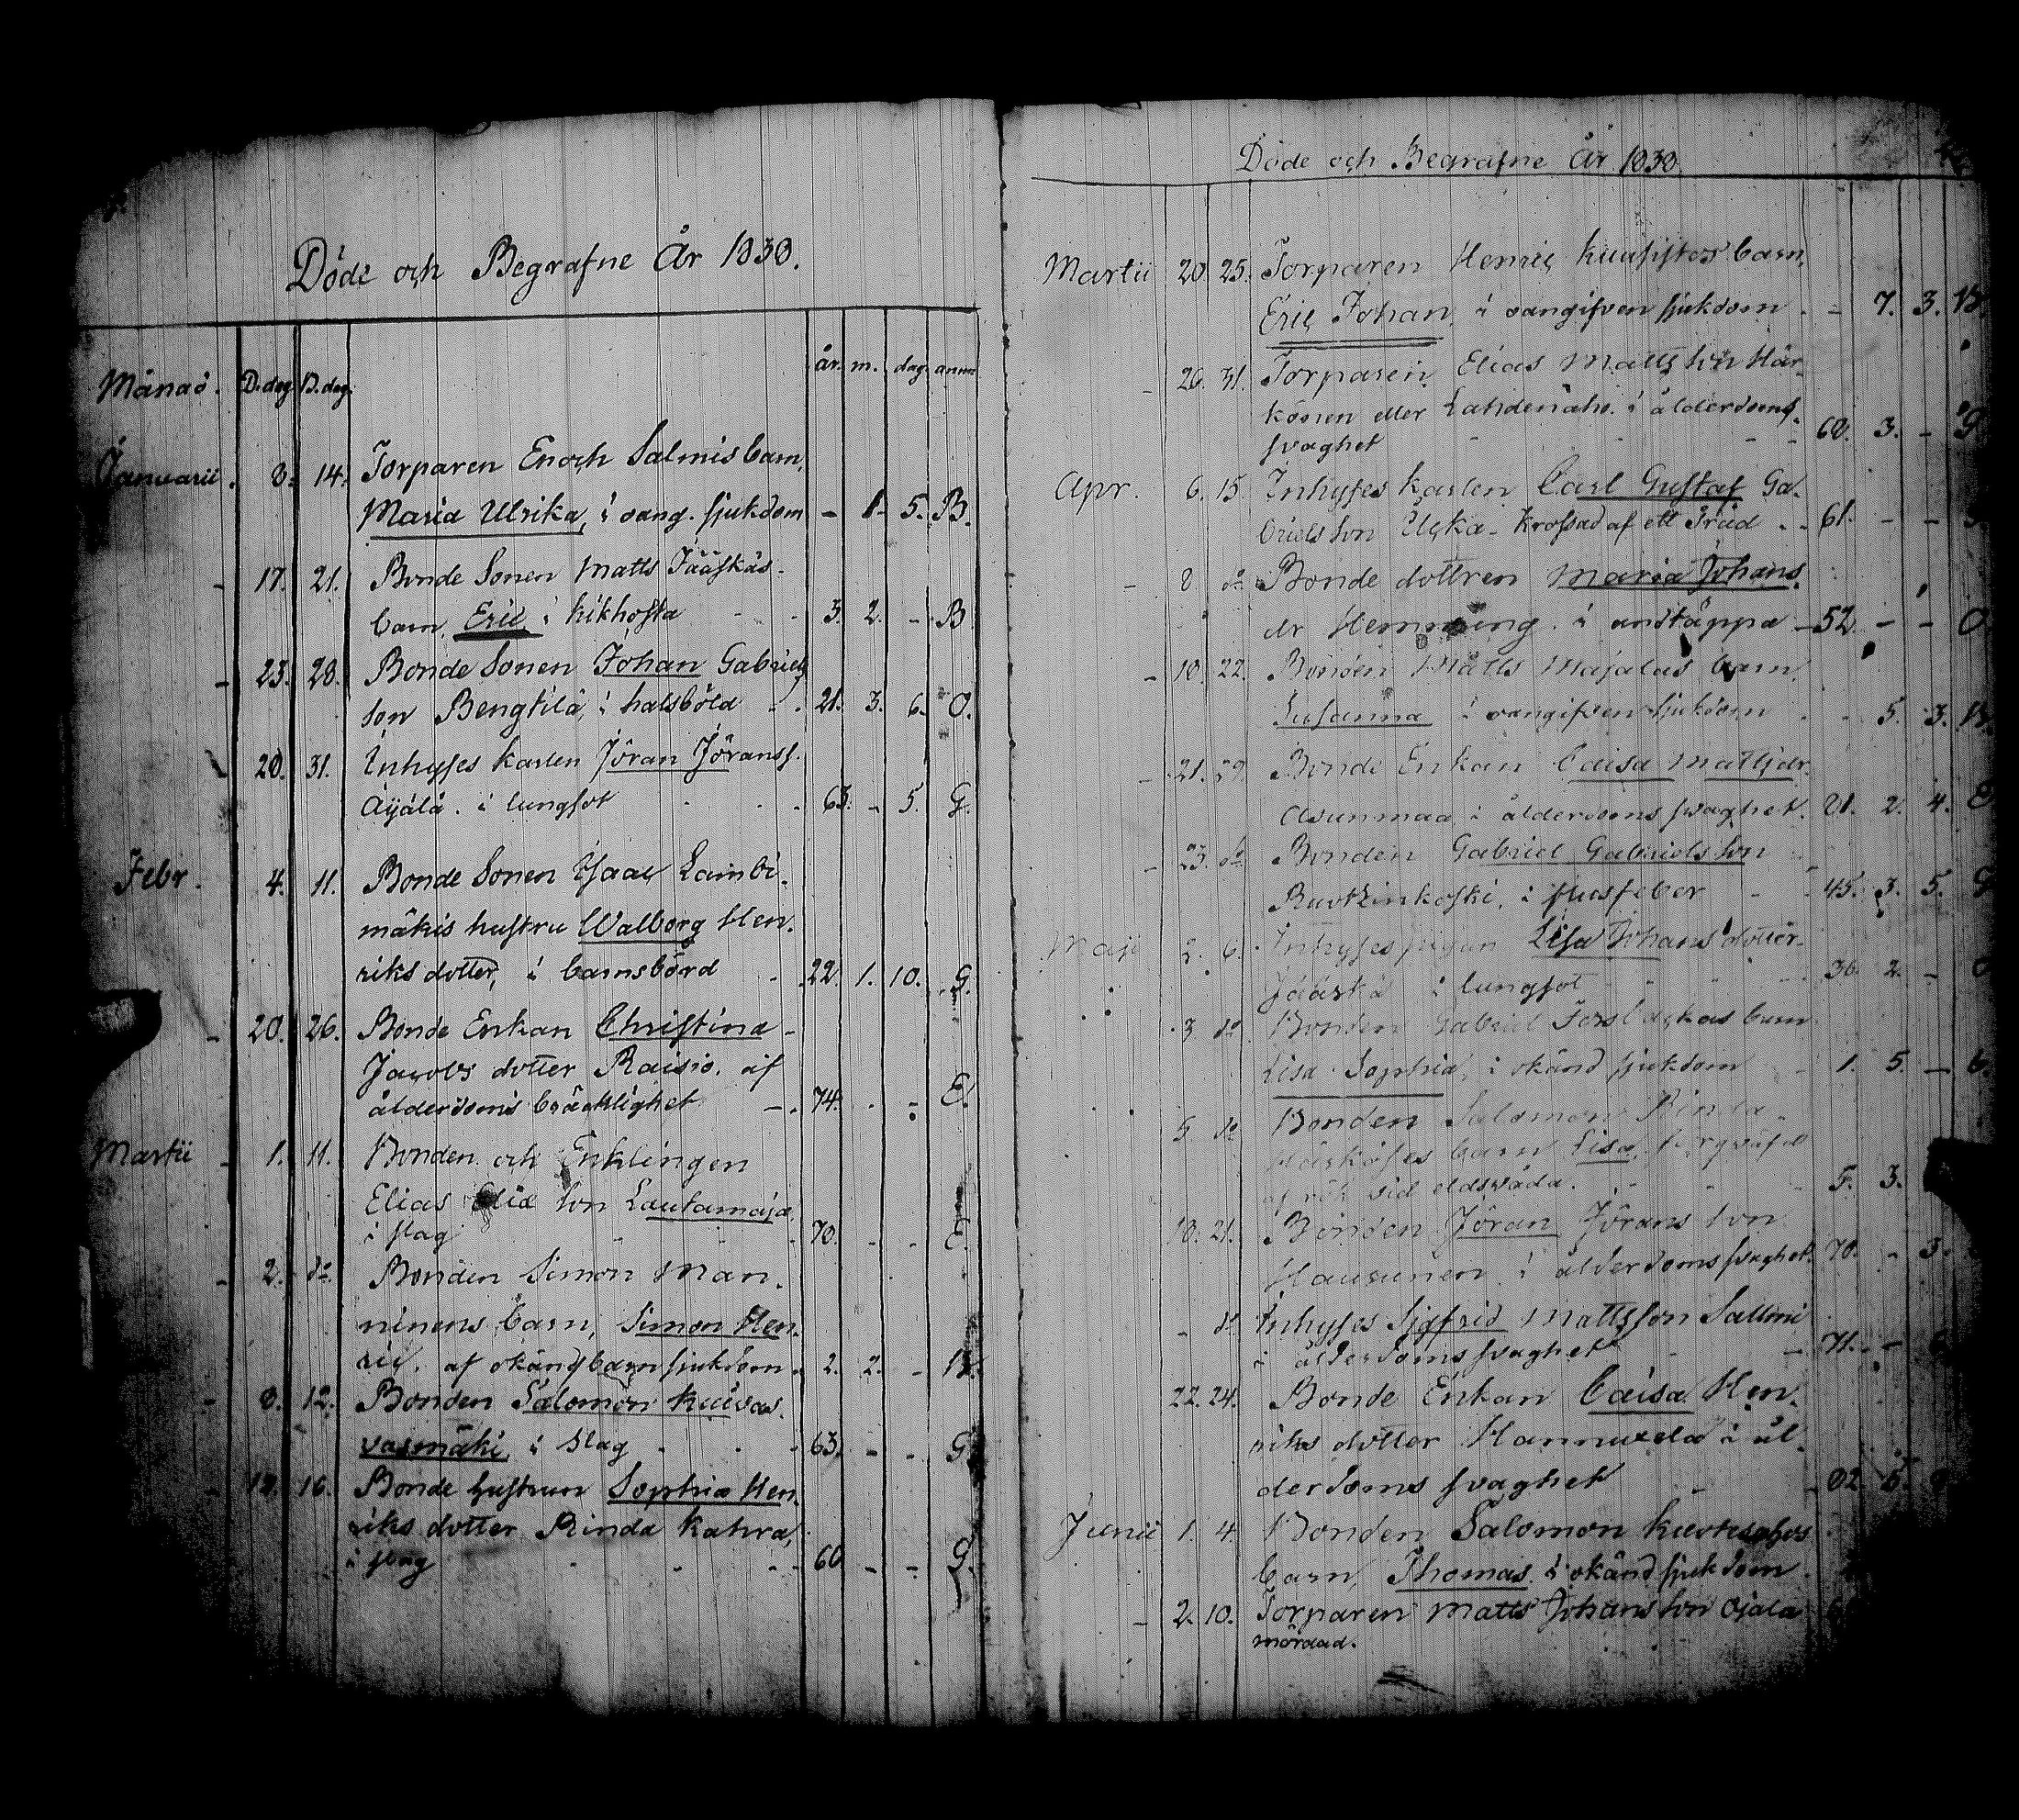 Döde och Begrafne År 1838.
Månad. D.dag B.dag. år. m. dag. anm
Januarii. 8. 14. Torparen Enoch Salmis barn,
Maria Ulrika, i oang. sjukdom - 1. 5. B.
- 17. 21. Bonde Sonen Matts Jääskäs
barn, Eric i kikhosta - - 3. 2. - B
- 23. 28. Bonde Sonen Johan Gabriels
son Bengtilä, i halsböld - . 21. 3. 6. O.
28. 31. Inhyses karlen Jöran Jöranss.
Äijälä. i lungsot . . . 63. - 5. G.
Febr. 4. 11. Bonde Sonen Isaac Lambi-
mäkis hustru Walborg Hen-
riks dotter, i barnsbörd . 22. 1. 10. G.
- 20. 26. Bonde Enkan Christina
Jacobs dotter Raisio. af
ålderdoms bräcklighet - . 74. . - E.
Martii - 1. 11. Bonden och Enklingen
Elias Eliæ son Lautamaja
i slag - - - 70. - - E.
- 2. do. Bonden Simon Man-
ninens barn, Simon Hen-
ric. af okänd barnsjukdom. 2. 2. - B.
- 8. 12. Bonden Salomon Kuivas-
vasmäki i slag . . . 63. - - G
- 16. Bonde hustrun Sophia Hen-
riks dotter Rinda Kahra,
i slag - - - 60 - - G.
Döde och Begrafne År 1838.
Martii 20. 25. Torparen Henric barn,
Eric Johan, i oangifven sjukdom . - 7. 3. B.
- 26. 31. Torparen Elias Mattsson Här-
könen eller i ålderdoms
svaghet - - - 68. 3. - G
Apr. 6. 15. Inhyses karlen Carl Gustaf Ga-
briels son krossad af ett träd . - 61. - -
- 8. do Bonde dottren Maria Johans
dr Hemming. i andtäppa - 52. - - O.
- 18. 22. Bonden Matts Majalas barn,
Susanna i oangifven sjukdom . - 5. 3. B.
- 21. 29. Bonde Enkan Caisa Mattsdr.
Asunmaa i ålderdoms svaghet. 81. 2. 4. E
- 23. do Bonden Gabriel Gabriels son
Ruotzinkoski, i flussfeber - - 45. 3. 5. G
Maji 2. 6. Inhyses pigan Lisa Johans dotter
Jääskä i lungsot - - 36. 2. - O
3 do Bonden Gabriel Forsbackas barn
Lisa Sophia, i okänd sjukdom - 1. 5. -
5. do Bonden Salomon Rinta
barn Lisa,
af rök vid eldsvåda. - - 5. 3.
18. 21. Bonden Jöran Jörans son
Hautunen i ålderdoms svaghet. 70. - 3.
- do Inhyses Sigfrid Mattsson Sallmi
i ålderdoms svaghet - - 71. -
22. 24. Bonde Enkan Caisa Hen-
riks dotter Hannuxela i ål-
derdoms svaghet - - 82. 5.
Junii 1. 4. Bonden Salomon
barn, Thomas i okänd sjukdom
- 2. 10. Torparen Matts Johans son Ojala
mördad.